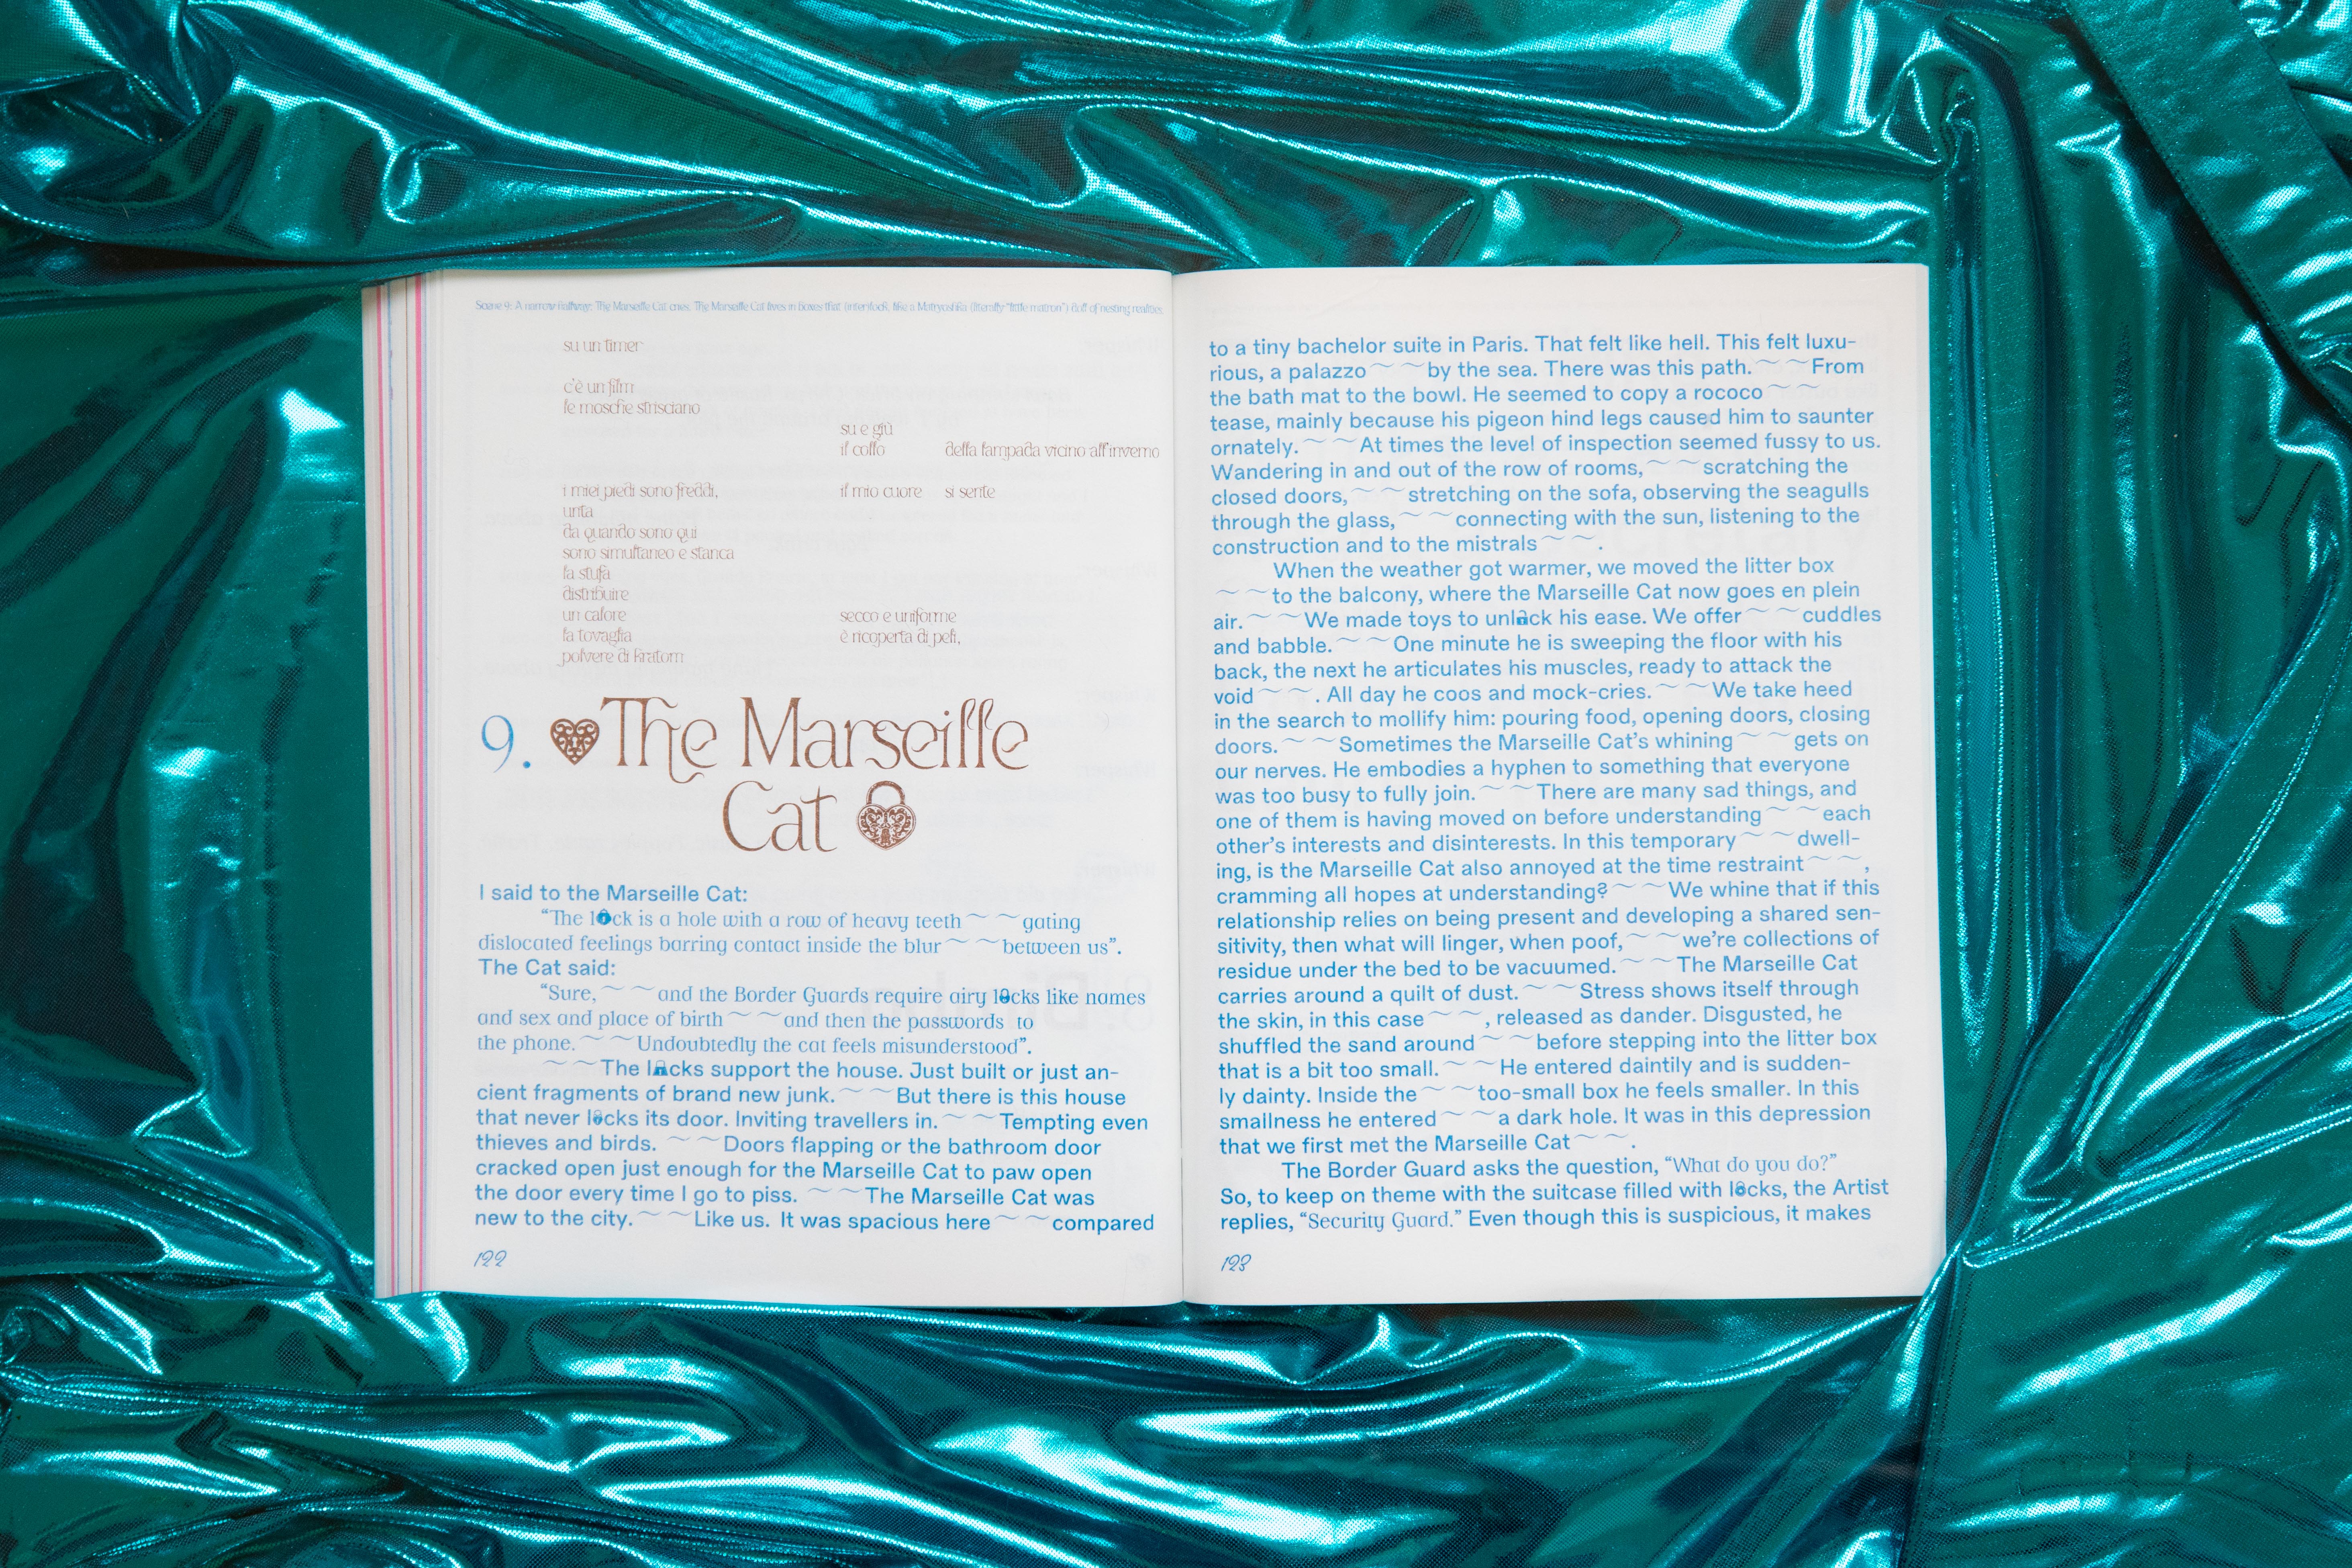 Scene 9: A narrow hallway: The Marseille Cat cries. The Marseille Cat lives in boxes that interlock, like a Matryoshka (literally "little matron") doll of nesting realities
su un timer
c'è un film
le mosche strisciano
su e giù
il collo della lampada vicino all'inverno
i miei piedi sono freddi, il mio cuore si sente
unta
da quando sono qui
sono simultaneo e stanca
la stufa
distribuire
un calore secco e uniforme
la tovaglia è ricoperta di peli,
polvere di kratom
9. The Marseille
Cat
I said to the Marseille Cat:
“The lock is a hole with a row of heavy teeth~~gating
dislocated feelings barring contact inside the blur~~between us”.
The Cat said:
“Sure,~~and the Border Guards require airy locks like names
and sex and place of birth~~and then the passwords to
the phone.~~Undoubtedly the cat feels misunderstood”.
~~The locks support the house. Just built or just an-
cient fragments of brand new junk.~~But there is this house
that never locks its door. Inviting travellers in.~~Tempting even
thieves and birds. ~~Doors flapping or the bathroom door
cracked open just enough for the Marseille Cat to paw open
the door every time I go to piss. ~~The Marseille Cat was
new to the city.~~Like us. It was spacious here~~compared
122
to a tiny bachelor suite in Paris. That felt like hell. This felt luxu-
rious, a palazzo~~by the sea. There was this path.~~From
the bath mat to the bowl. He seemed to copy a rococo~~
tease, mainly because his pigeon hind legs caused him to saunter
ornately.~~At times the level of inspection seemed fussy to us.
Wandering in and out of the row of rooms,~~scratching the
closed doors,~~stretching on the sofa, observing the seagulls
through the glass,~~connecting with the sun, listening to the
construction and to the mistrals~~.
When the weather got warmer, we moved the litter box
~~to the balcony, where the Marseille Cat now goes en plein
air.~~We made toys to unlock his ease. We offer~~cuddles
and babble.~~One minute he is sweeping the floor with his
back, the next he articulates his muscles, ready to attack the
void~~. All day he coos and mock-cries.~~We take heed
in the search to mollify him: pouring food, opening doors, closing
doors.~~Sometimes the Marseille Cat’s whining~~gets on
our nerves. He embodies a hyphen to something that everyone
was too busy to fully join.~~There are many sad things, and
one of them is having moved on before understanding~~each
other’s interests and disinterests. In this temporary~~dwell-
ing, is the Marseille Cat also annoyed at the time restraint~~,
cramming all hopes at understanding?~~We whine that if this
relationship relies on being present and developing a shared sen-
sitivity, then what will linger, when poof,~~we’re collections of
residue under the bed to be vacuumed.~~The Marseille Cat
carries around a quilt of dust.~~Stress shows itself through
the skin, in this case~~, released as dander. Disgusted, he
shuffled the sand around~~before stepping into the litter box
that is a bit too small.~~He entered daintily and is sudden-
ly dainty. Inside the~~too-small box he feels smaller. In this
smallness he entered~~a dark hole. It was in this depression
that we first met the Marseille Cat~~.
The Border Guard asks the question, “What do you do?”
So, to keep on theme with the suitcase filled with locks, the Artist
replies, “Security Guard.” Even though this is suspicious, it makes
123